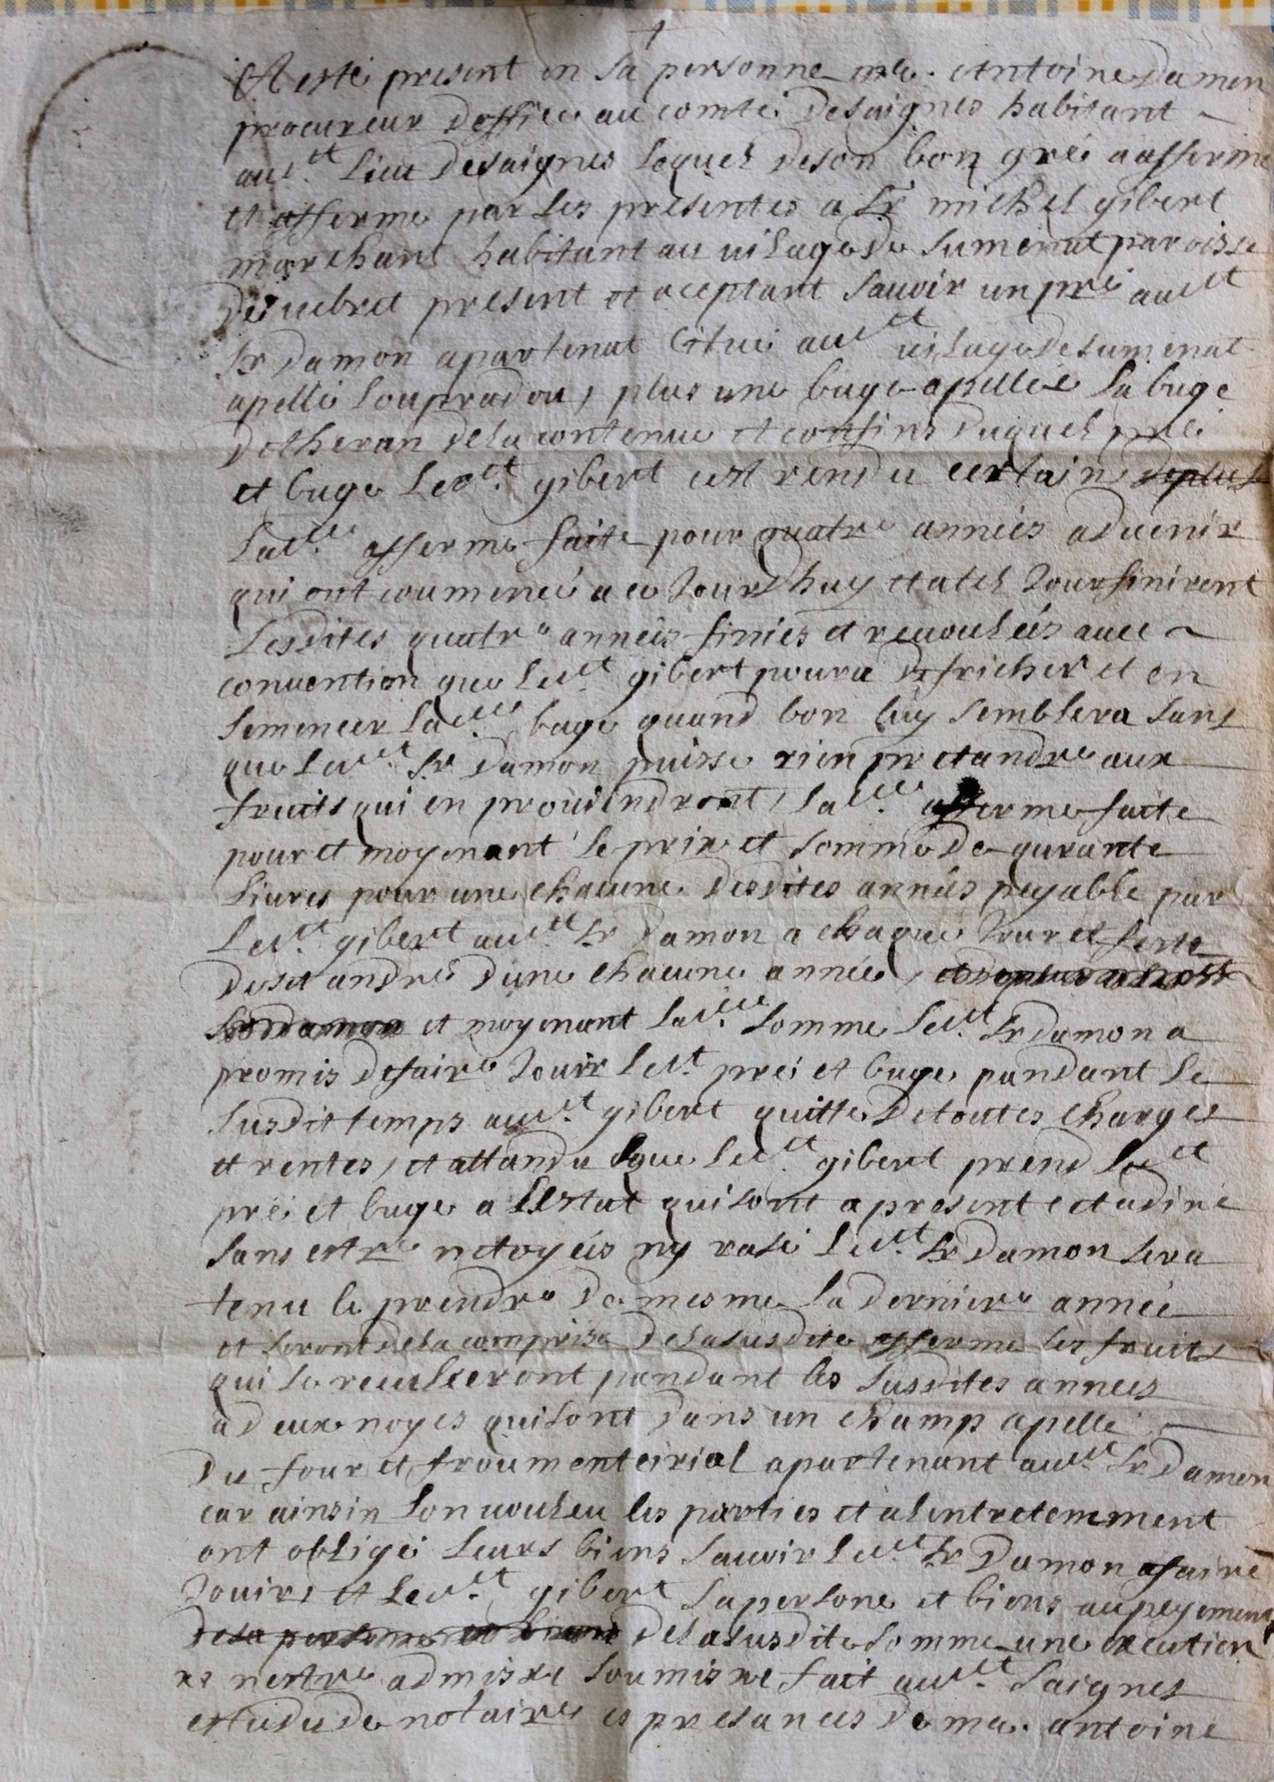 A esté present en sa personne me. Antoine damon
procureur doffice au comté desaignes habitant
aud.t lieu desaignes lequel deson bon gré a afferme
et afferme par les presentes a Sr michel gibert
marchant habitant au uilage de sumenat paroisse
de uebret present et aceptant sauoir un pré audt
Sr damon apartenat citué audt uilage de sumenat
apellé loupradou, plus une buge apellée la buge
dotheran dela contenue et confins duquel pré
et buge led.t gibert cest rendu certain deplus
lad.te afferme faite pour quatre années aduenir
qui ont coumencé a ce jourdhuy et atel jour finiront
lesdites quatre années finies et reuoulées auec
conuention que led.t gibert poura defricher et en
semencer lad.te buge quand bon luy semblera sans
que led.t Sr damon puisse rien pretandre aux
fruits qui en prouiendront, lad.te afferme faite
pour et moyenant le prix et somme de qurante
liures pour une chacune desdites années peyable par
led.t gibert aud.t Sr damon a chaque jour et feste
de st andré dune chacune année,
et moyenant lad.te somme led.t Sr damon a
promis defaire jouir led.t pré et buge pandant le
susdit temps aud.t gibert quitte detoutes charges
et rentes, et attandu que led.t gibert prend led.t
pré et buge a lestat quisont apresent cetadire
sans estre netoyés ny rasé led.t Sr damon sera
tenu le prendre de mesme la derniere année
et seront dela comprise delasusdite afferme les fruits
qui se reculieront pandant les susdites annees
a deux noyes quisont dans un champ apellé
du four et froumenteirial apartenant aud.t Sr damon
car ainsin lon uouleu les parties et alentretenement
ont obligé leurs biens sauoir led.t Sr damon afaire
jouir, et led.t gibert sapersone et biens aupeyement
desa personne et biens delasusdite somme une exeution
ne nestre admisxe soumisxe fait aud.t saignes
estude de notaire es presances de me. antoine